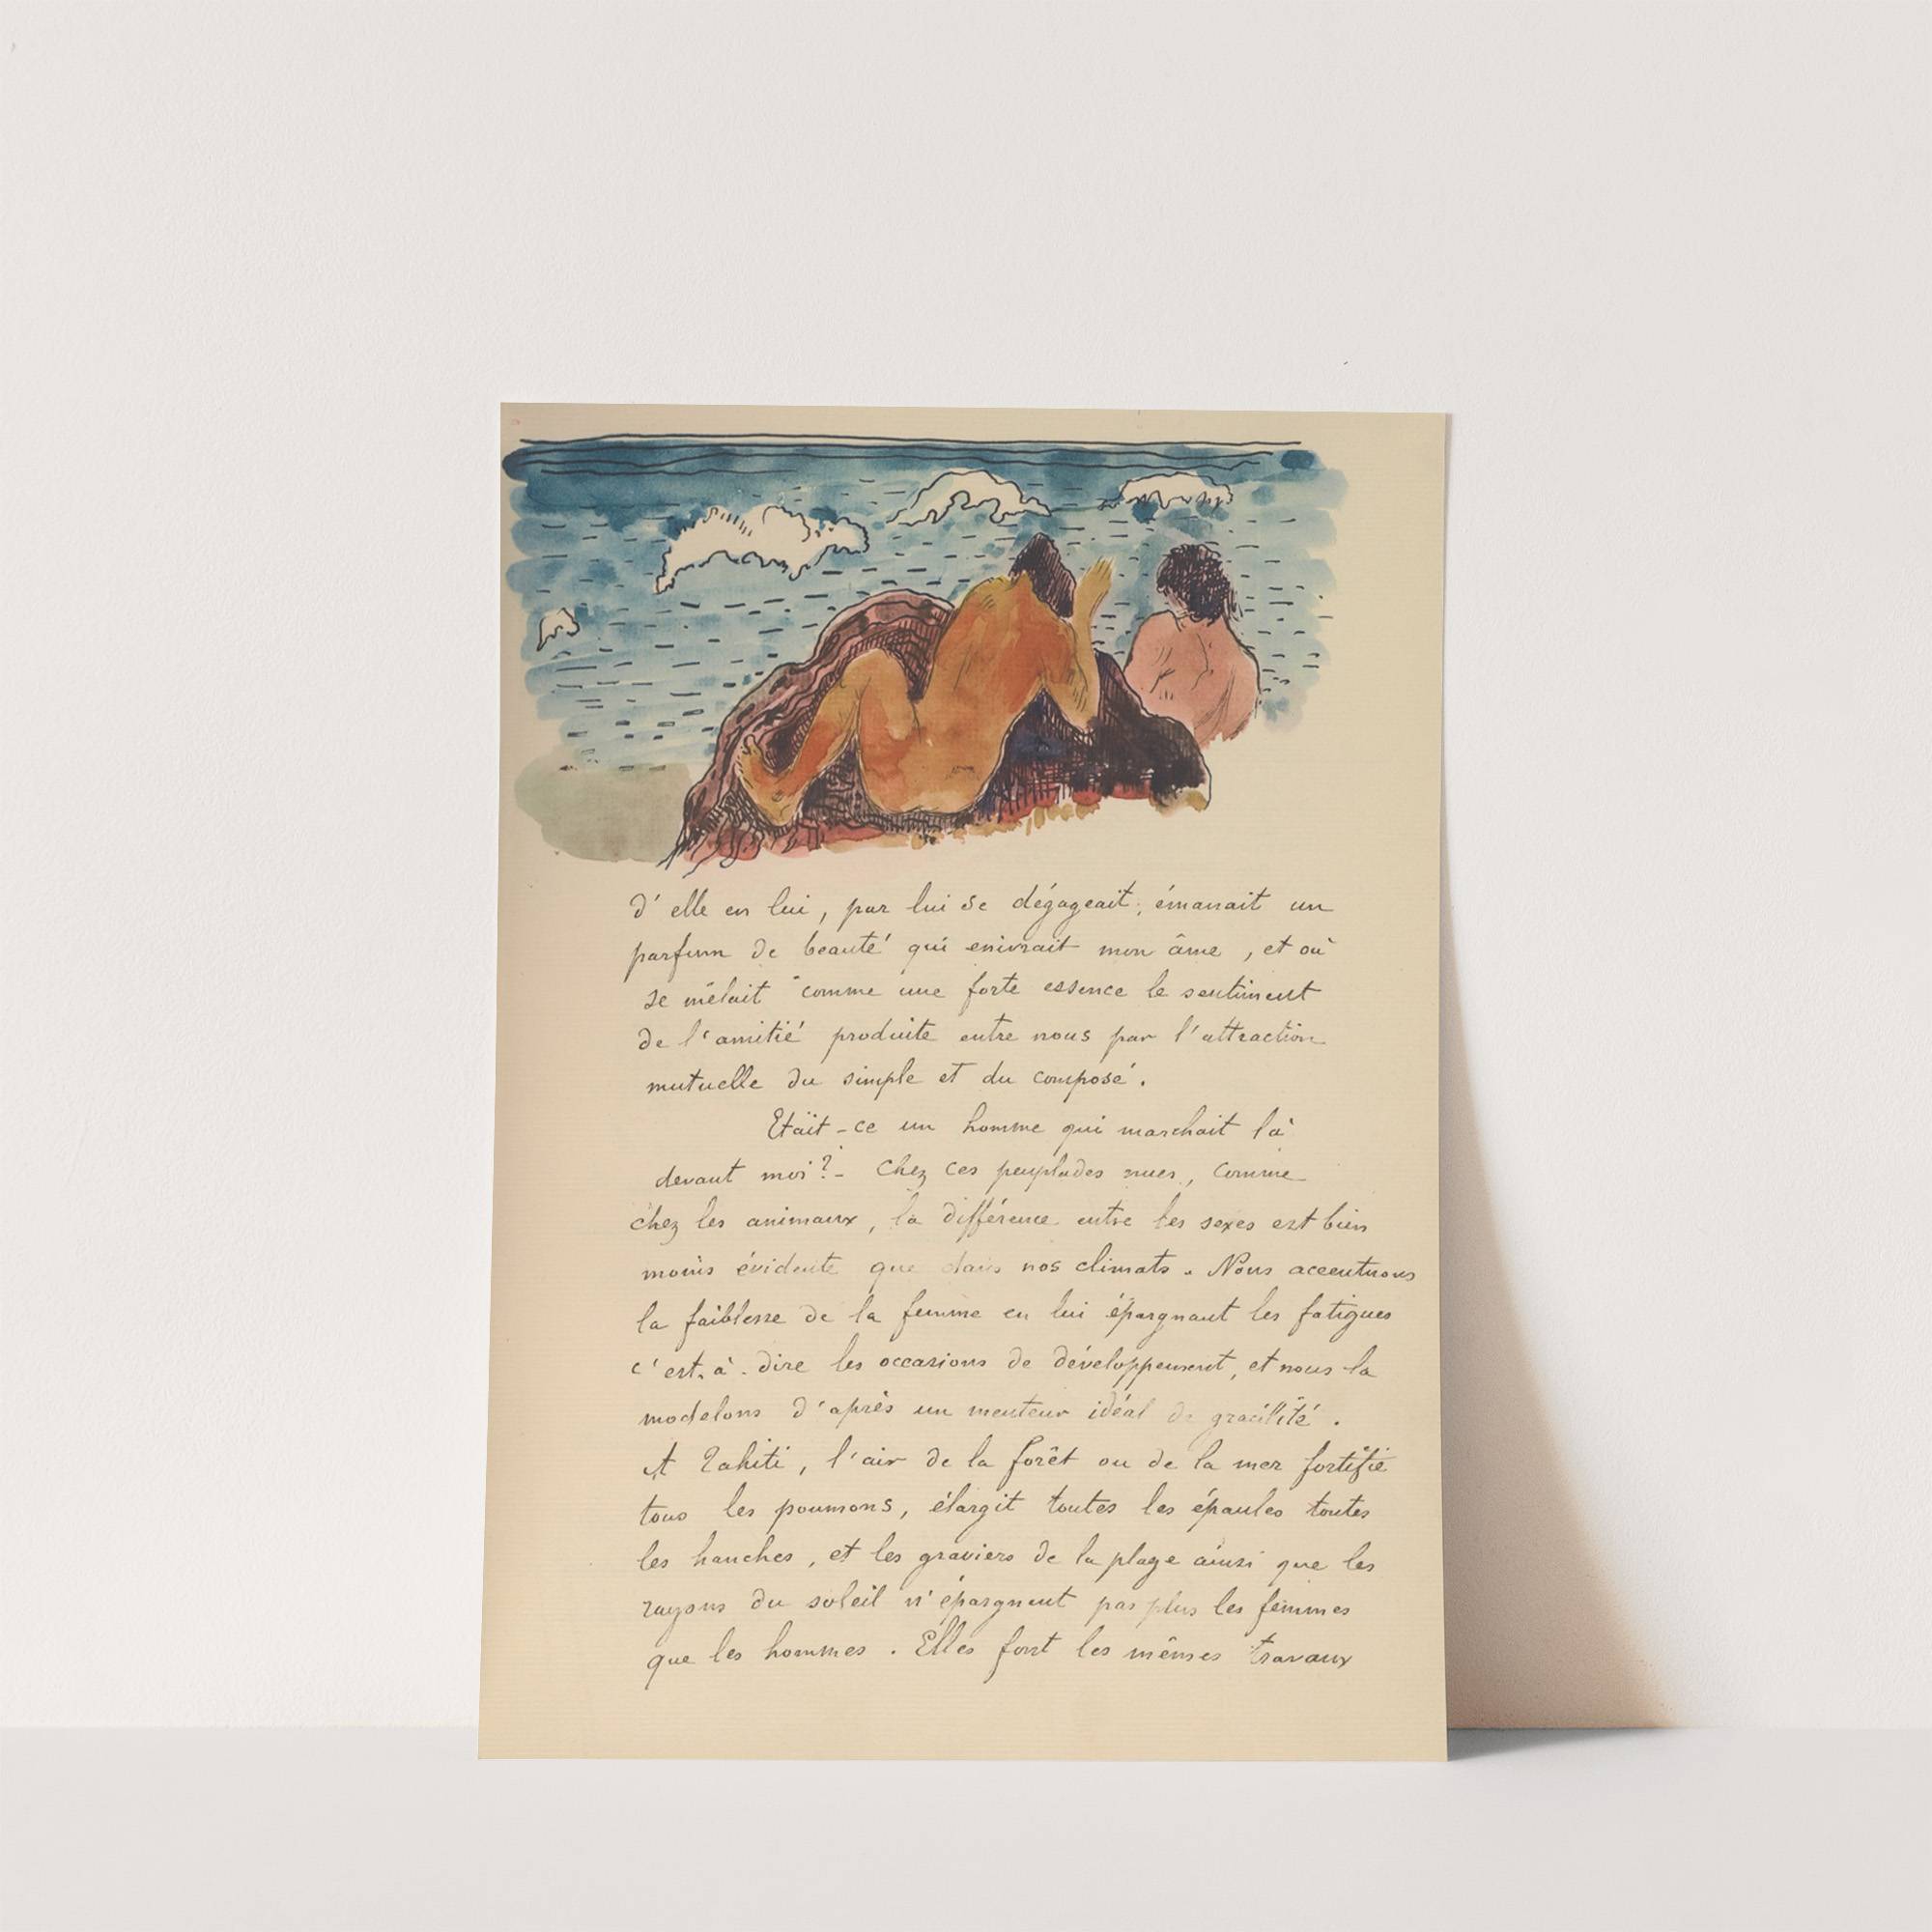 d'elle en lui, par lui se dégageait, émanait un
parfum de beauté qui enivrait mon âme, et où
se mêlait comme une forte essence le sentiment
de l'amitié produite entre nous par l'attraction
mutuelle du simple et du composé.
Etait-ce un homme qui marchait là
devant moi? - Chez ces peuplades nues, comme
chez les animaux, la différence entre les sexes est bien
moins évidente que dans nos climats. Nous accentuons
la faiblesse de la femme en lui épargnant les fatigues
c'est-à-dire les occasions de développement, et nous la
modelons d'après un menteur idéal de gracilité.
A Tahiti, l'air de la forêt ou de la mer fortifie
tous les poumons, élargit toutes les épaules toutes
les hanches, et les graviers de la plage ainsi que les
rayons du soleil n'épargnent pas plus les femmes
que les hommes. Elles font les mêmes travaux